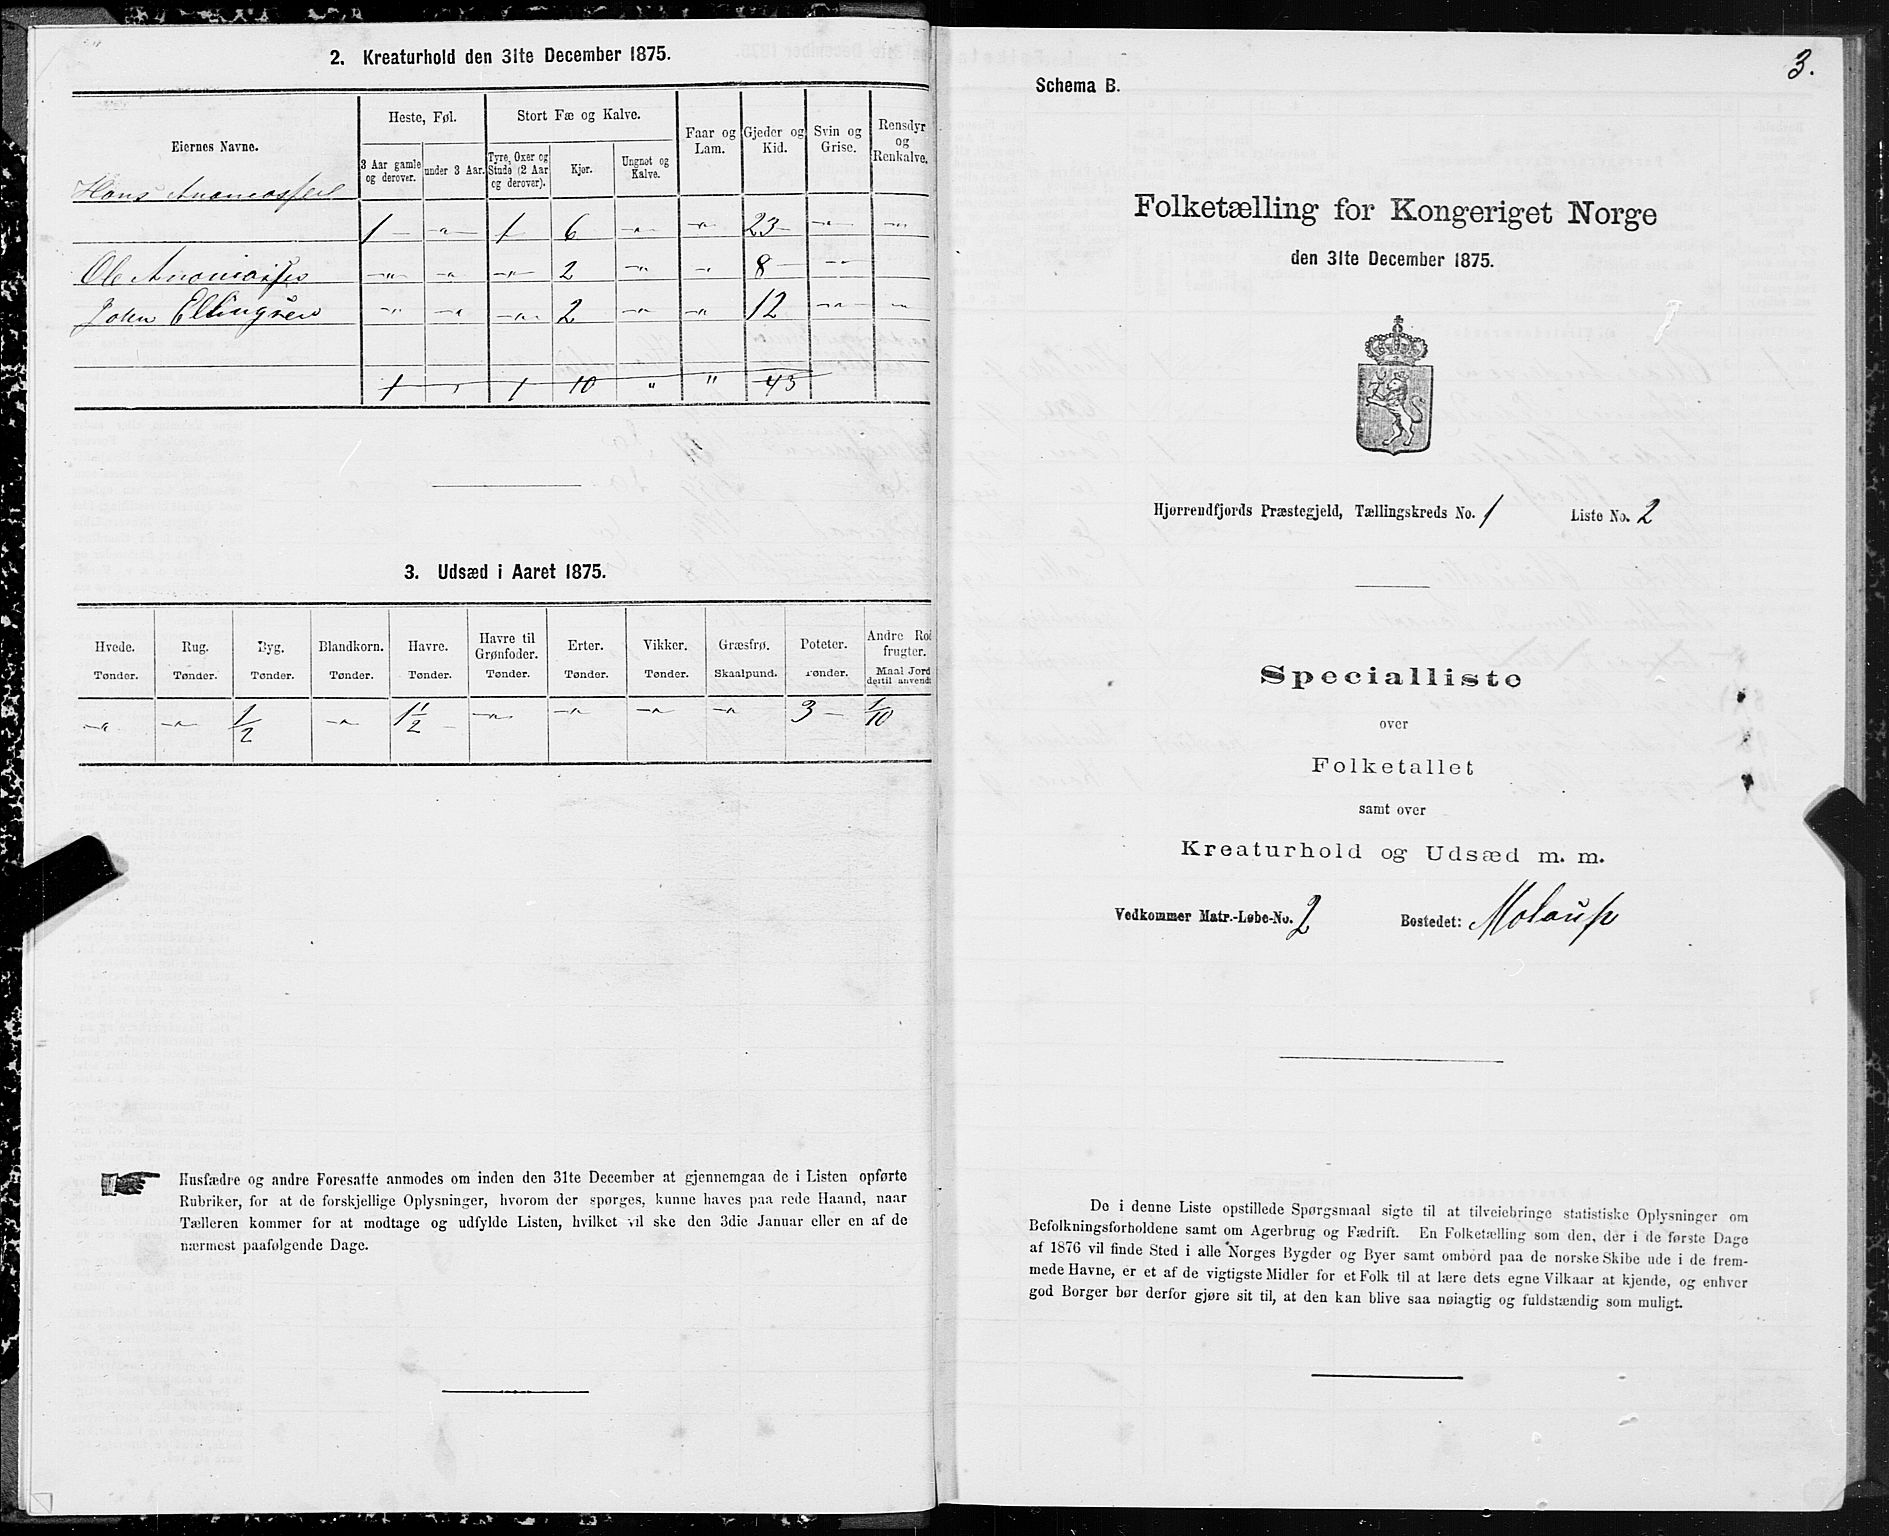 2. Kreaturhold den 31te December 1875.
Eiernes Navne.
Heste, Føl.
Stort Fæ og Kalve.
Faar og Lam.
Gjeder og Kid.
Svin og Grise.
Rensdyr og Renkalve.
3 Aar gamle og derover.
under 3 Aar.
Tyre, Oxer og Stude (2 Aar og derover).
Kjør.
Ungnøt og Kalve.
Hans Ananiassen
1 - " - 1 6 - " - " 23 - " - "
Ole Ananiassen - " - " - " - 2 - " - " 8 - " -
John Ellingsen - " - " - " - 2 - " - " - 12 - " - "
1 " 1 10 " " 43
3. Udsæd i Aaret 1875.
Hvede. Rug. Byg. Blandkorn. Havre. Havre til Grønfoder. Erter. Vikker. Græsfrø. Poteter. Andre Rodfrugter.
Tønder. Tønder. Tønder. Tønder. Tønder. Tønder. Tønder. Tønder. Skaalpund. Tønder. Maal Jord dertil anvendt
- " - " - 1/2 - " - 1 1/2 - " - " - " - " - 3 - 1/10
Husfædre og andre Foresatte anmodes om inden den 31te December at gjennemgaa de i Listen opførte
Rubriker, for at de forskjellige Oplysninger, hvorom der spørges, kunne haves paa rede Haand, naar
Tælleren kommer for at modtage og udfylde Listen, hvilket vil ske den 3die Januar eller en af de
nærmest paafølgende Dage.
3.
Schema B.
Folketælling for Kongeriget Norge
den 31te December 1875.
Hjørrendfjords Præstegjeld, Tællingskreds No. 1 Liste No. 2
Specialliste
over
Folketallet
samt over
Kreaturhold og Udsæd m. m.
Vedkommer Matr.-Løbe-No. 2 Bostedet: Molaup
De i denne Liste opstillede Spørgsmaal sigte til at tilveiebringe statistiske Oplysninger om
Befolkningsforholdene samt om Agerbrug og Fædrift. En Folketælling som den, der i de første Dage
af 1876 vil finde Sted i alle Norges Bygder og Byer samt ombord paa de norske Skibe ude i de frem-
mede Havne, er et af de vigtigste Midler for et Folk til at lære dets egne Vilkaar at kjende, og enhver
god Borger bør derfor gjøre sit til, at den kan blive saa nøiagtig og fuldstændig som muligt.